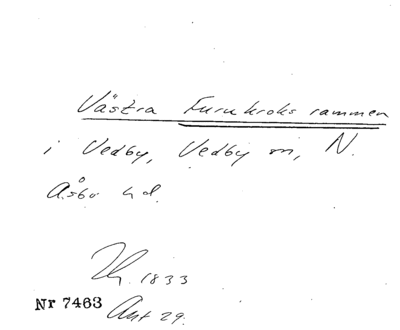 Västra Furukroks rammen
i Vedby, Vedby sn, N.
Åsbo hd.
1833
Nr 7463 Akt 29.